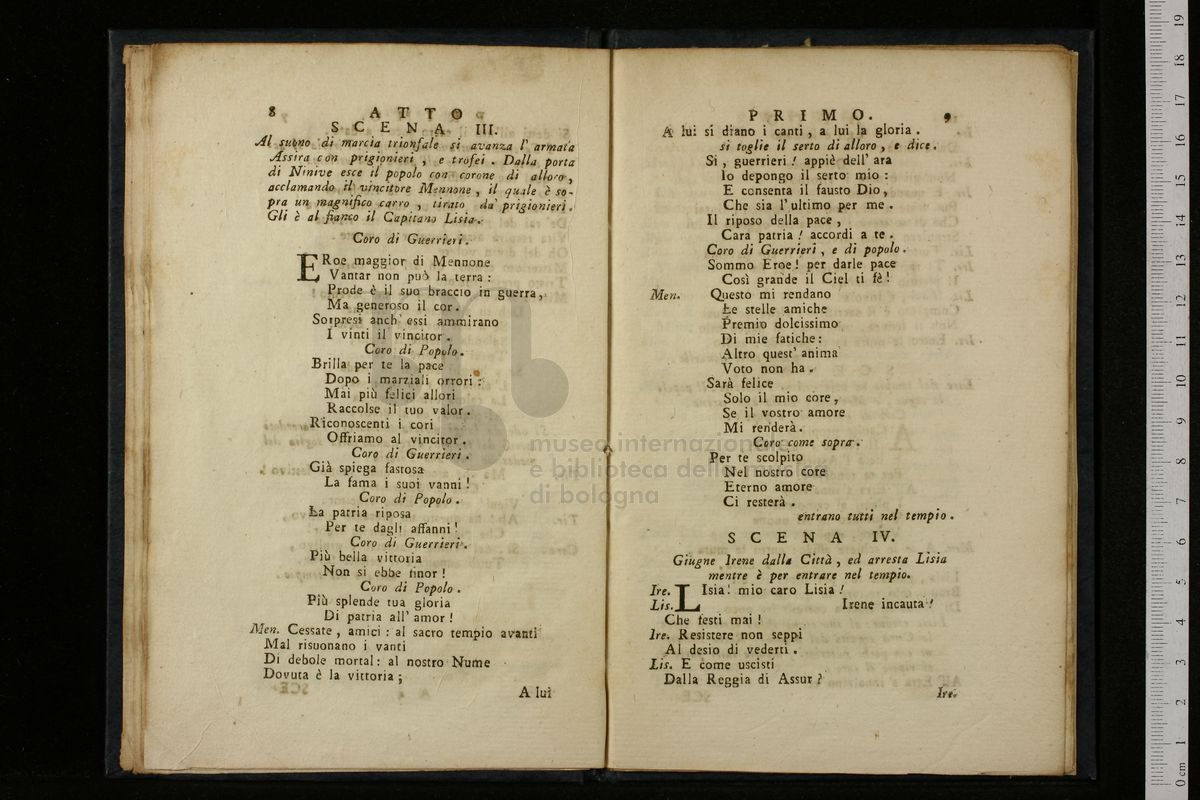 8 ATTO
SCENA III.
Al suono di marcia trionfale si avanza l' armata
Assira con prigionieri , e trofei . Dalla porta
di Ninive esce il popolo con corone di alloro,
acclamando il vincitore Mennone , il quale è so-
pra un magnifico carro , tirato da' prigionieri.
Gli è al fianco il Capitano Lisia.
Coro di Guerrieri.
ERoe maggior di Mennone
Vantar non può la terra :
Prode è il suo braccio in guerra,
Ma generoso il cor.
Sorpresi anch' essi ammirano
I vinti il vincitor.
Coro di Popolo.
Brilla per te la pace
Dopo i marziali orrori :
Mai più felici allori
Raccolse il tuo valor.
Riconoscenti i cori
Offriamo al vincitor.
Coro di Guerrieri.
Già spiega fastosa
La fama i suoi vanni !
Coro di Popolo.
La patria riposa
Per te dagli affanni !
Coro di Guerrieri.
Più bella vittoria
Non si ebbe finor !
Coro di Popolo.
Più splende tua gloria
Di patria all' amor !
Men. Cessate , amici : al sacro tempio avanti
Mal risuonano i vanti
Di debole mortal: al nostro Nume
Dovuta è la vittoria ;
A lui
PRIMO. 9
A lui si diano i canti , a lui la gloria .
si toglie il serto di alloro , e dice.
Sì , guerrieri ! appiè dell' ara
Io depongo il serto mio :
E consenta il fausto Dio,
Che sia l' ultimo per me .
Il riposo della pace ,
Cara patria ! accordi a te .
Coro di Guerrieri , e di popolo.
Sommo Eroe ! per darle pace
Così grande il Ciel ti fè !
Men. Questo mi rendano
Le stelle amiche
Premio dolcissimo
Di mie fatiche :
Altro quest' anima
Voto non ha .
Sarà felice
Solo il mio core,
Se il vostro amore
Mi renderà.
Coro come sopra.
Per te scolpito
Nel nostro core
Eterno amore
Ci resterà .
entrano tutti nel tempio.
SCENA IV.
Giugne Irene dalla Città , ed arresta Lisia
mentre è per entrare nel tempio.
Ire. LIsia! mio caro Lisia !
Lis. Irene incauta !
Che festi mai !
Ire. Resistere non seppi
Al desio di vederti .
Lis. E come uscisti
Dalla Reggia di Assur ?
Ire.
museo internazionale
e biblioteca della musica
di bologna
0 cm 1 2 3 4 5 6 7 8 9 10 11 12 13 14 15 16 17 18 19